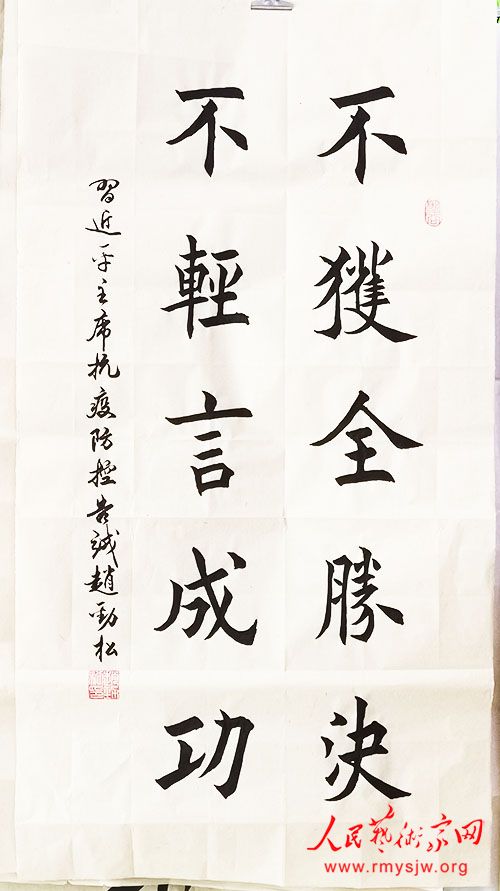 不獲全勝決
不輕言成功
習近平主席抗疫防控告诫趙勁松
人民藝術家网
www.rmysjw.org